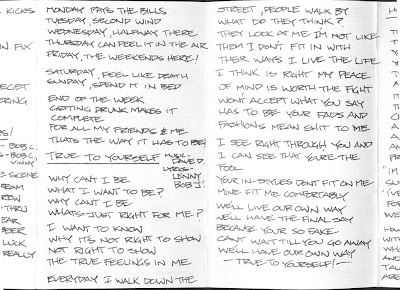 KICKS
IN FIX
EGET
RING
S!
- BOB C.
- BOB C.
VINNY
E SCENE
EAM
REW
THRU
EAR
BEER
LUCK
REALLY
MONDAY PAYS THE BILLS
TUESDAY, SECOND WIND
WEDNESDAY, HALFWAY THERE
THURSDAY CAN FEEL IT IN THE AIR
FRIDAY, THE WEEKENDS HERE!
SATURDAY, FEEL LIKE DEATH
SUNDAY, SPEND IT IN BED
END OF THE WEEK
GETTING DRUNK MAKES IT
COMPLETE
FOR ALL MY FRIENDS & ME
THATS THE WAY IT HAS TO BE!
TRUE TO YOURSELF
MUSIC-
DAVE D.
LYRICS-
LENNY
BOB J.
WHY CANT I BE
WHAT I WANT TO BE?
WHY CANT I BE
WHATS JUST RIGHT FOR ME?
I WANT TO KNOW
WHY ITS NOT RIGHT TO SHOW
NOT RIGHT TO SHOW
THE TRUE FEELINGS IN ME
EVERYDAY I WALK DOWN THE
STREET, PEOPLE WALK BY
WHAT DO THEY THINK?
THEY LOOK AT ME IM NOT LIKE
THEM I DONT FIT IN WITH
THEIR WAYS I LIVE THE LIFE
I THINK IS RIGHT MY PEACE
OF MIND IS WORTH THE FIGHT
WONT ACCEPT WHAT YOU SAY
HAS TO BE YOUR FADS AND
FASHIONS MEAN SHIT TO ME
I SEE RIGHT THROUGH YOU AND
I CAN SEE THAT YOURE THE
FOOL
YOUR IN-STYLES DONT FIT ON ME
MINE FIT ME COMFORTABLY
WE'LL LIVE OUR OWN WAY
WE'LL HAVE THE FINAL SAY
BECAUSE YOUR SO FAKE
CANT WAIT TILL YOU GO AWAY
WE'LL HAVE OUR OWN WAY
- TRUE TO YOURSELF! -